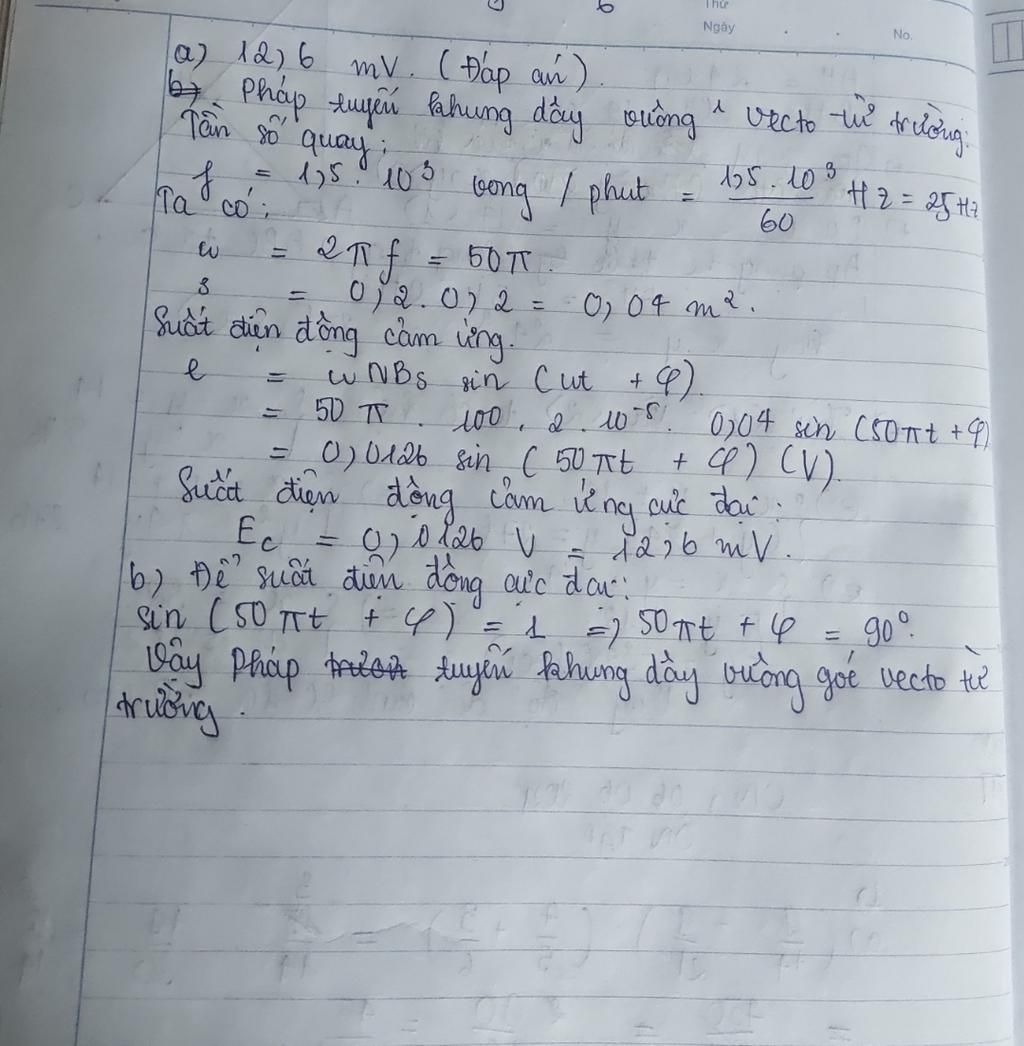 Thứ
Ngày
No.
a) 12,6 mV. (Đáp án).
b) Pháp tuyến khung dây vuông vecto từ trường:
Tần số quay:
f = 1,5. 10³ vong / phut = 1,5. 10³ / 60 Hz = 25 Hz
Ta có:
w = 2πf = 50π.
s = 0,2.0,2 = 0,04 m².
Suất điện động cảm ứng.
e = wNBs sin (wt + φ).
= 50 π. 100. 2. 10⁻⁵. 0,04 sin (50πt + φ)
= 0,0126 sin (50πt + φ) (V).
Suất điện động cảm ứng cực đại:
Ec = 0,0126 V = 12,6 mV.
b) Để suất điện động cực đại:
sin (50πt + φ) = 1 => 50πt + φ = 90°.
Vậy pháp tuyến khung dây vuông góc vecto từ
trường.